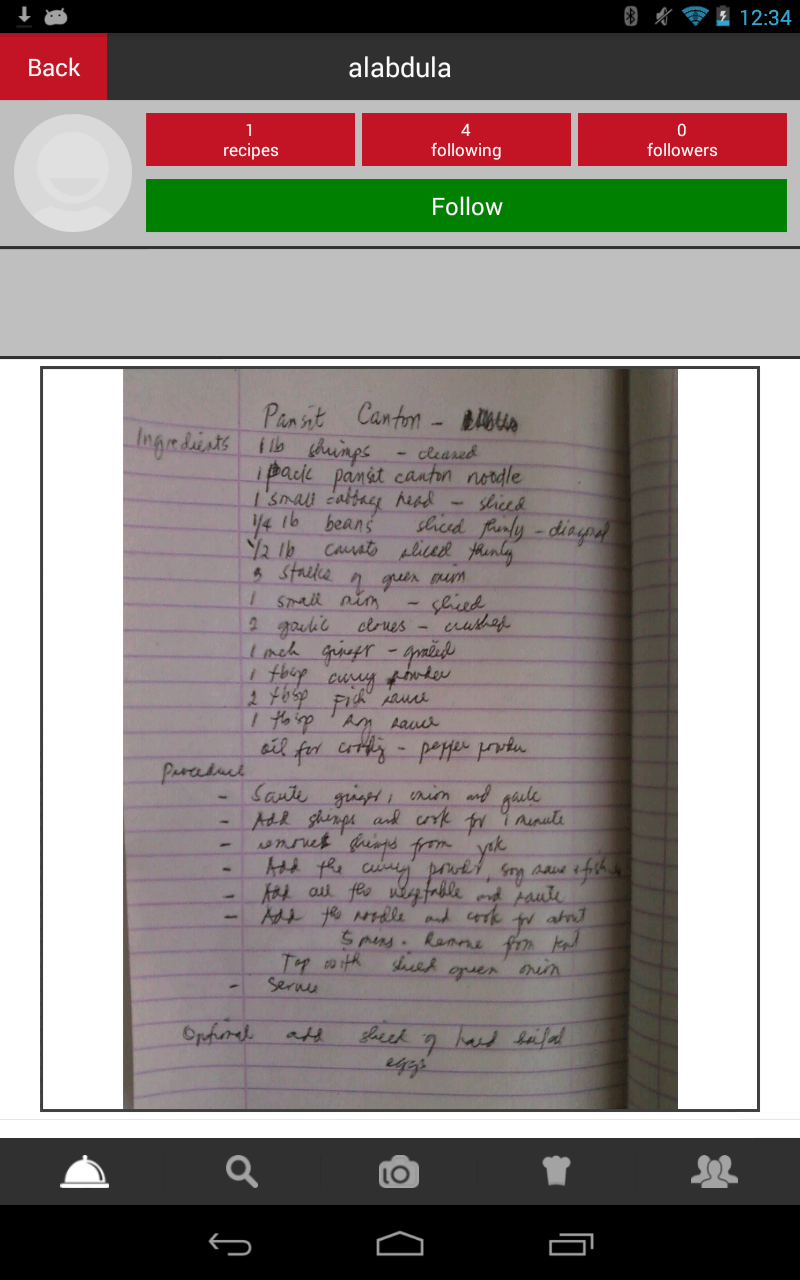 12:34
Back
alabdula
1
recipes
4
following
0
followers
Follow
Pansit Canton -
Ingredients
1 lb shrimps - cleaned
1 pack pansit canton noodle
1 small cabbage head - sliced
1/4 lb beans sliced thinly - diagonal
1/2 lb carrots sliced thinly
3 stalks of green onion
1 small onion - sliced
2 garlic cloves - crushed
1 inch ginger - grated
1 tbsp curry powder
2 tbsp fish sauce
1 tbsp soy sauce
oil for cooking - pepper powder
Procedure
- Saute ginger, onion and garlic
- Add shrimps and cook for 1 minute
- remove shrimps from
- Add the curry powder, soy sauce & fish
- Add all the vegetable and saute
- Add the noodle and cook for about
5 mins. Remove from heat
Top with sliced green onion
- Serve
Optional add sliced of hard boiled
eggs